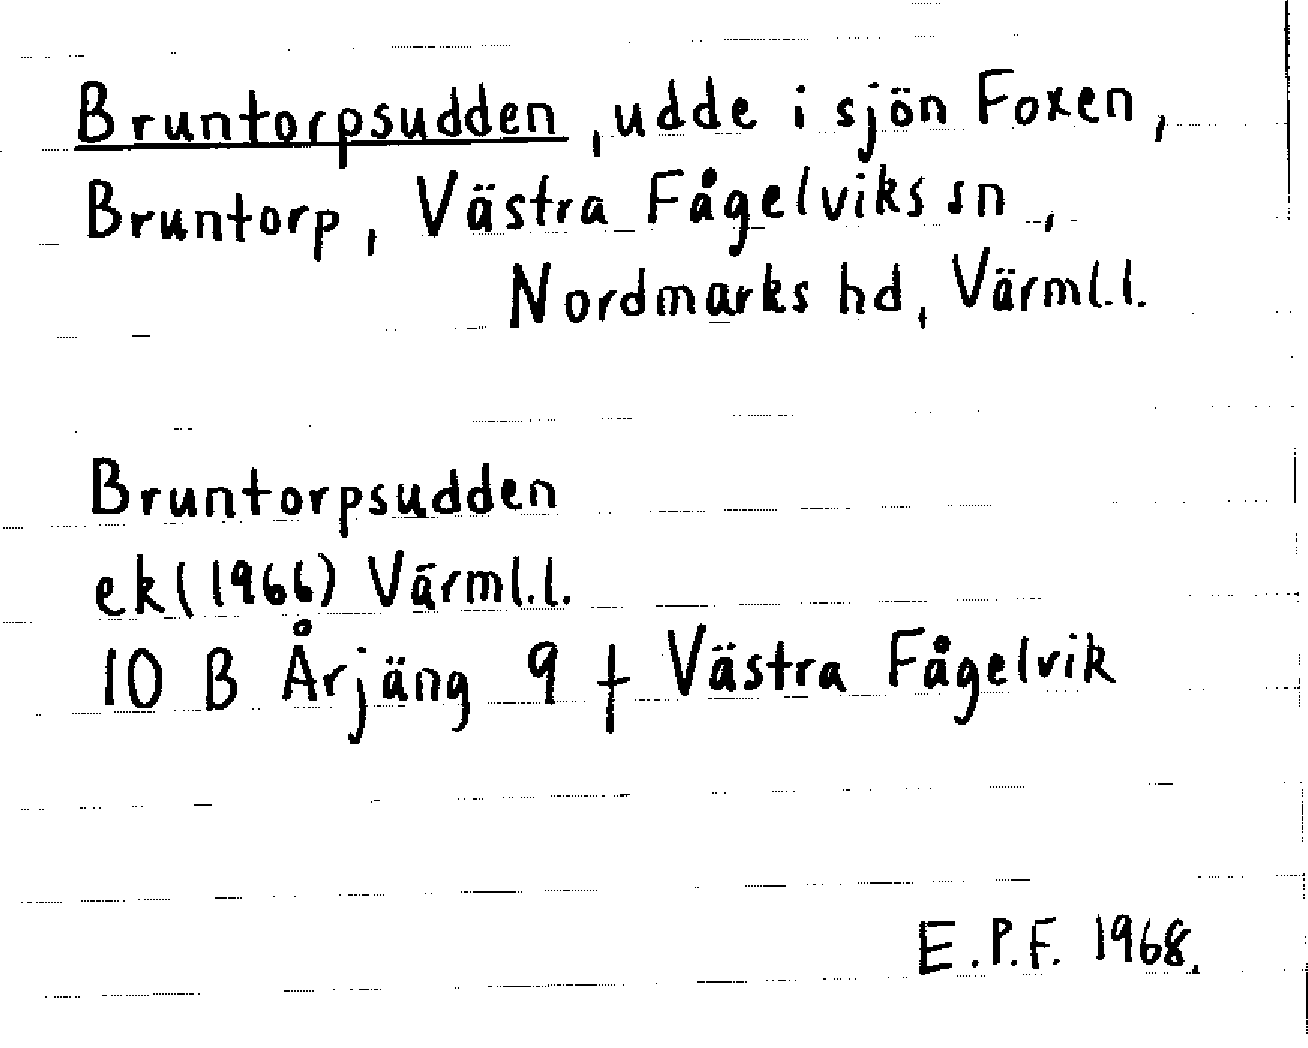 Bruntorpsudden, udde i sjön Foxen,
Bruntorp, Västra Fågelviks sn,
Nordmarks hd, Värml.l.
Bruntorpsudden
ek (1966) Värml.l.
10 B Årjäng 9 f Västra Fågelvik
E.P.F. 1968.